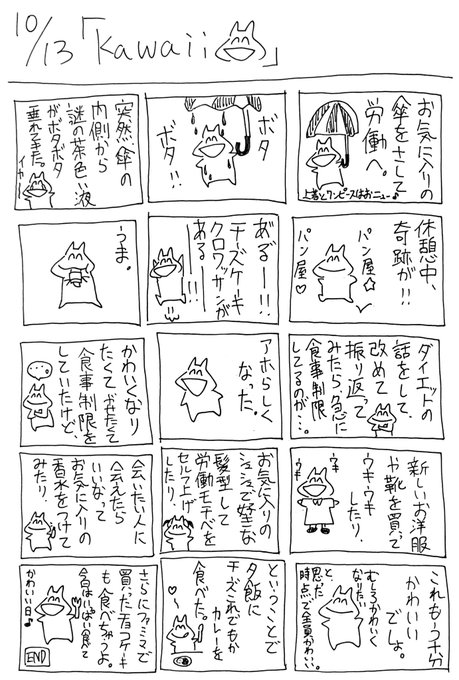 10/13「kawaii」
お気に入りの
傘をさして
労働へ。
上着とワンピースはおニュー♪
ボタ
ボタ!!
突然傘の
内側から
謎の茶色い液
がボタボタ
垂れてきた。
休憩中、
奇跡が!!
パン屋☆
パン屋♡
あるーー!!
チーズケーキ
クロワッサンが
あるーー!!
うま。
ダイエットの
話をして、
改めて
振り返って
みたら、急に
食事制限
してるのが…。
アホらしく
なった。
かわいくなり
たくて
食事制限を
していたけど、
新しいお洋服
や靴を買って
ウキウキ
したり、
ウキ
ウキ
お気に入りの
シュシュで好きな
髪型して
労働モチベを
セルフ上げ
したり、
会いたい人に
会えたら
いいなって
お気に入りの
香水をつけて
みたり、
これもう
かわいい
でしょ。
むしろかわいく
なりたい
と、思った
時点で全員かわいい。
ということで
夕飯に
チーズこれでもか
カレーを
食べた。
さらにファミマで
買った ケーキ
も食べちゃうよ。
今日はいっぱい食べて
かわいい日♪
END